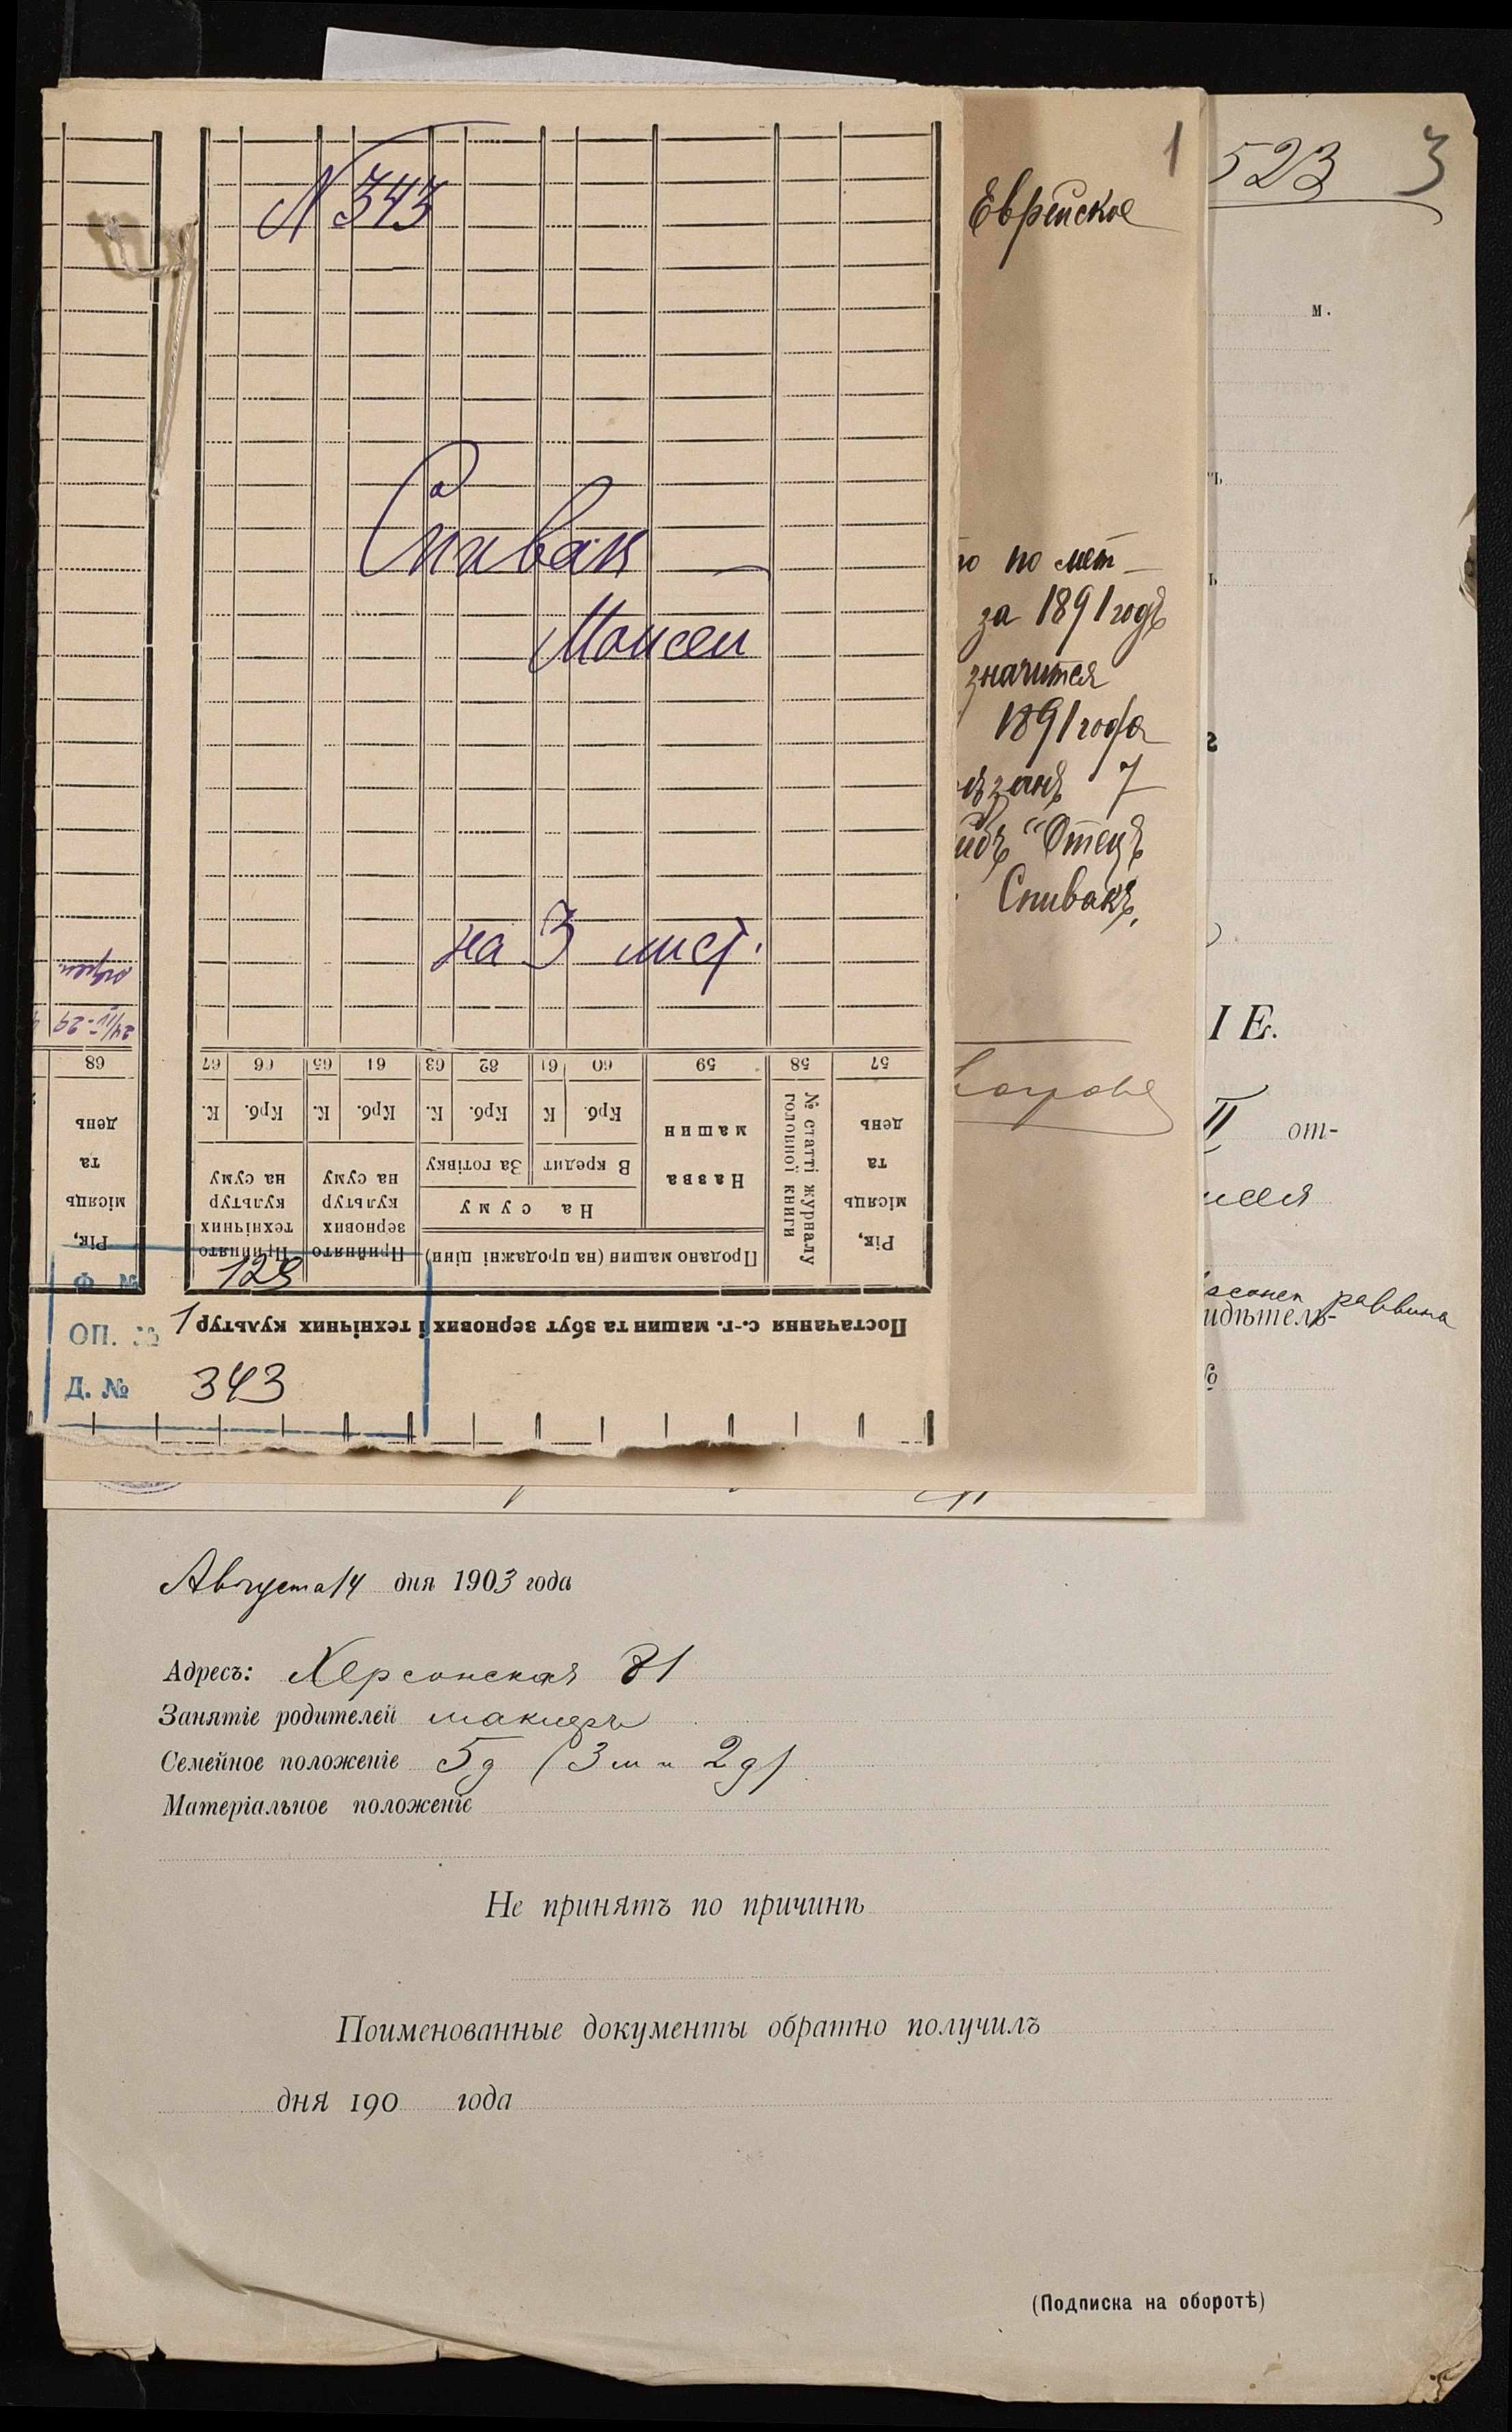 N 343
Спивак
Моисей
на 3 лист.
24/IV-29
68 67 66 65 64 63 62 61 60 59 58 57
день К. Крб. К. Крб. К. Крб. К Крб. машин день
та на суму на суму За готівку В кредит Назва № статті журналу головної книги та
місяць культур культур На суму місяць
Рік, технічних зернових Рік,
Прийнято Прийнято Продано машин (на продажні ціни)
Ф №
128
Постачання с.-г. машин та збут зернових й технічних культур
ОП. № 1
Д. № 343
1
Еврейское
то по мет-
за 1891 годъ
значится
1891 года
7
Отецъ
Спивакъ,
523 3
м.
ІЕ.
II от-
раввина
идѣтель-
№
Августа 14 дня 1903 года
Адресъ: Херсонская 81
Занятіе родителей маклеръ
Семейное положеніе 5 д (3 м и 2 д)
Матеріальное положеніе
Не принятъ по причинѣ
Поименованные документы обратно получилъ
дня 190 года
(Подписка на оборотѣ)